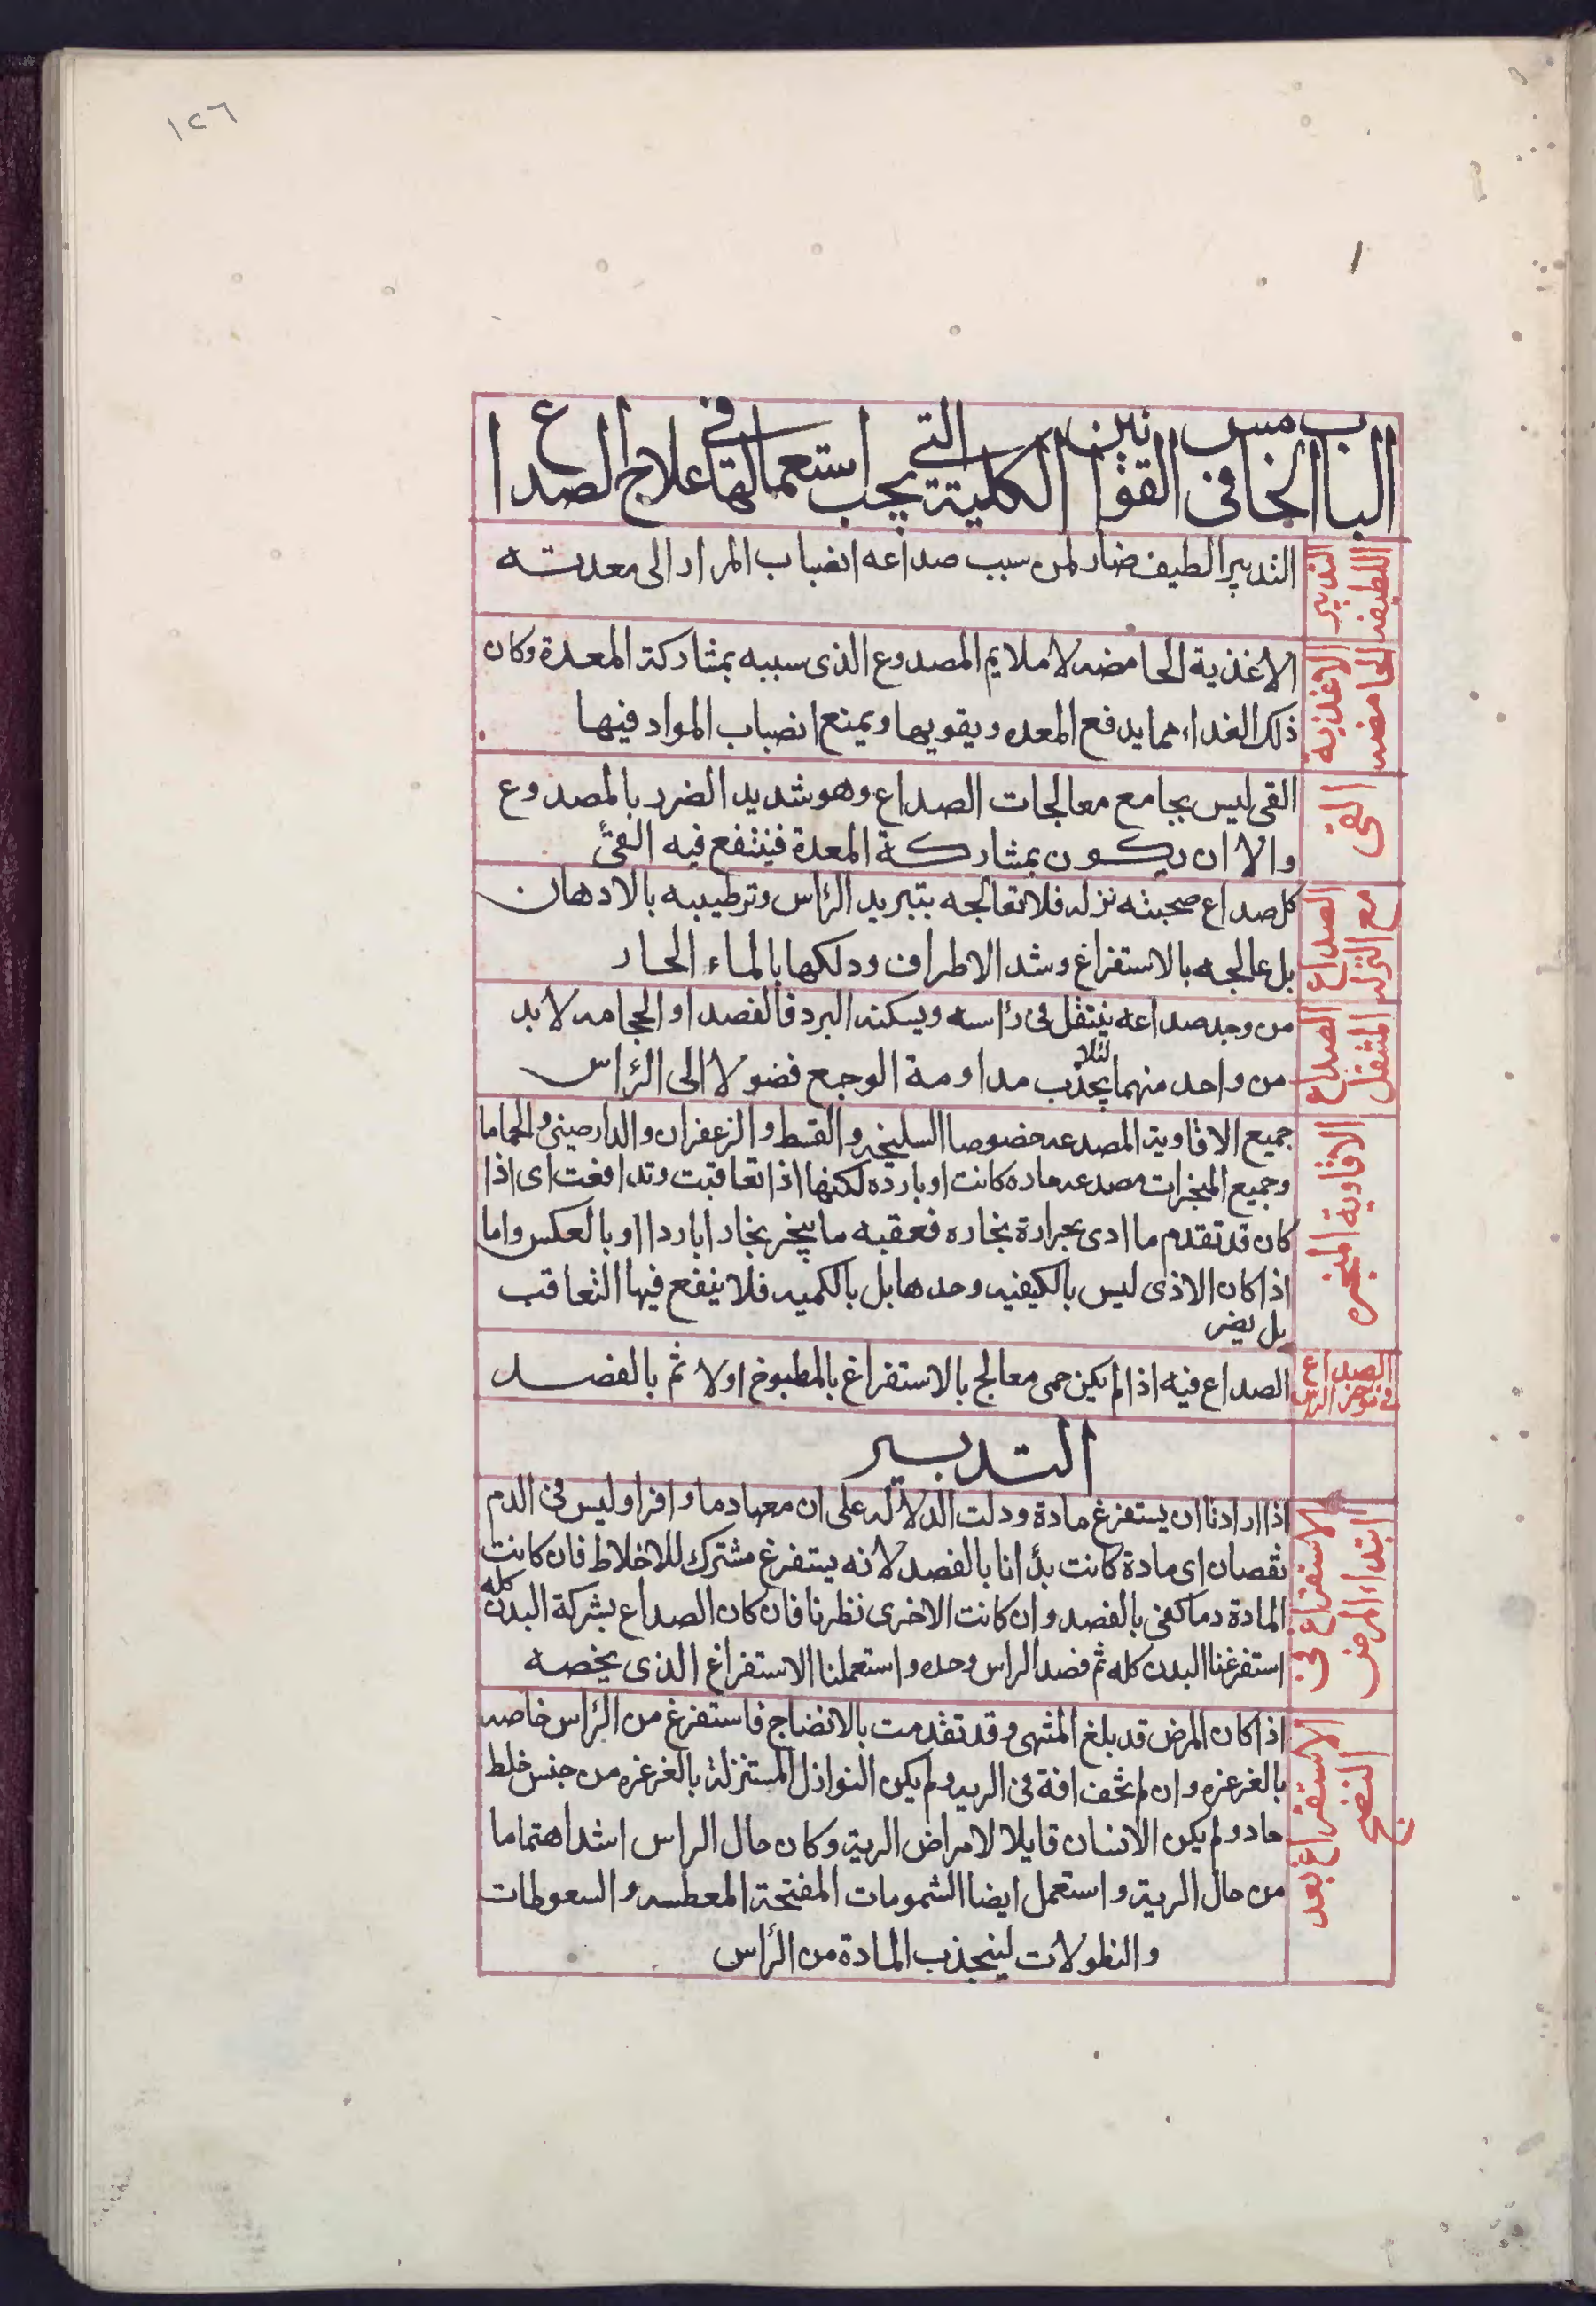 ١٢٦
١
الباب الخامس فى القوانين الكلية التى يجب استعمالها فى علاج الصداع
التدبير اللطيف
التدبير الطيف ضار لمن سبب صداعه انضباب المرار الى معدته
الاغذية الحامضه
الاغذية الحامضه لا ملايم المصدوع الذى سببه بمشاركة المعدة وكان
ذلك الغداء مما يدفع المعده ويقويها ويمنع انضباب المواد فيها
القى
القى ليس بجامع معالجات الصداع وهو شديد الضرر بالمصدوع
والا ان يكون بمشاركة المعدة فينتفع فيه القئ
الصداع مع النزله
كل صداع صحبته نزله فلا تعالجه بتبريد الرأس وترطيبه بالادهان
بل عالجه بالاستفراغ وشد الاطراف ودلكها بالماء الحار
الصداع المتنقل
من وجد صداعه ينتقل فى رأسه ويسكنه البرد فالفصد او الحجامه لا بد
من واحد منهما لئلا يجذب مداومة الوجع فضولا الى الرأس
الافاوية المبخره
جميع الافاوية المصدعه خصوصا السليخه والقسط والزعفران والدارصينى والحماما
وجميع المبخرات مصدعه حاره كانت او بارده لكنها اذا تعاقبت وتدافعت اى اذا
كان قد تقدم ما ادى بحرارة بخاره فعقبه ما يبخر بخارا باردا او بالعكس واما
اذا كان الاذى ليس بالكيفيه وحدها بل بالكميه فلا ينفع فيها التعاقب
بل يضر
الصداع فى موخر الراس
الصداع فيه اذا لم يكن حمى معالج بالاستفراغ بالمطبوخ اولا ثم بالفصد
التدبير
الاستفراغ فى ابتداء المرض
اذا اردنا ان يستفرغ مادة ودلت الدلاله على ان معها دما وافرا وليس فى الدم
نقصان اى مادة كانت بدأنا بالفصد لانه يستفرغ مشترك للاخلاط فان كانت
المادة دما كفى بالفصد وان كانت الاخرى نظرنا فان كان الصداع بشركة البدن كله
استفرغنا البدن كله ثم فصد الراس وحده واستعملنا الاستفراغ الذى يخصه
الاستفراغ بعد النضج
اذا كان المرض قد بلغ المنتهى وقد تقدمت بالانضاج فاستفرغ من الرأس خاصه
بالغرغره وان لم تخف افة فى الريه ولم يكن النوازل المستنزلة بالغرغره من جنس خلط
حاد ولم يكن الانسان قابلا لامراض الرية وكان حال الراس اشد اهتماما
من حال الرية واستعمل ايضا الشمومات المفتحة المعطسه والسعوطات
والنطولات لينجذب المادة من الرأس